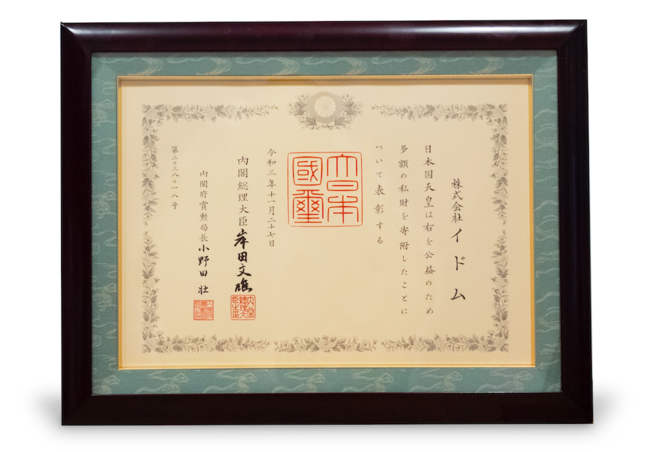 株式会社イドム
日本国天皇は右を公益のため
多額の私財を寄附したことに
ついて表彰する
大日本
國璽
令和三年十一月二十七日
内閣総理大臣 岸田文雄
内閣府賞勲局長 小野田 壮